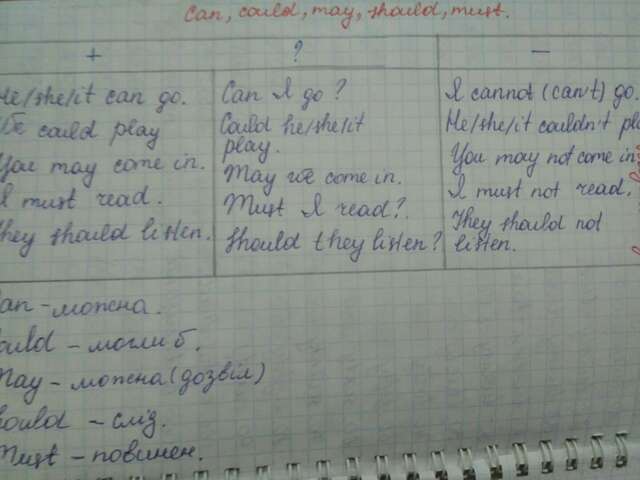 Can, could, may, should, must.
+ ? –
He/she/it can go.
We could play
You may come in.
I must read.
They should listen.
Can I go?
Could he/she/it
play.
May we come in.
Must I read?
Should they listen?
I cannot (can't) go.
He/she/it couldn't pl
You may not come in
I must not read.
They should not
listen.
an – можна.
ould – могли б.
May – можна (дозвіл)
hould – слід.
Must – повинен.